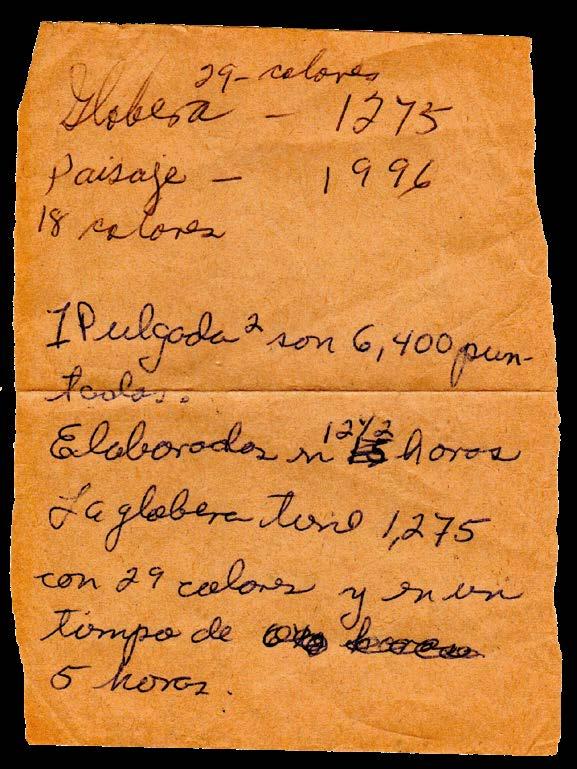 29- colores
Globera - 1275
Paisaje - 1996
18 colores
1 Pulgada² son 6,400 pun-
tadas.
Elaborados en 12 1/2 horas
La globera tiene 1,275
con 29 colores y en un
tiempo de
5 horas.